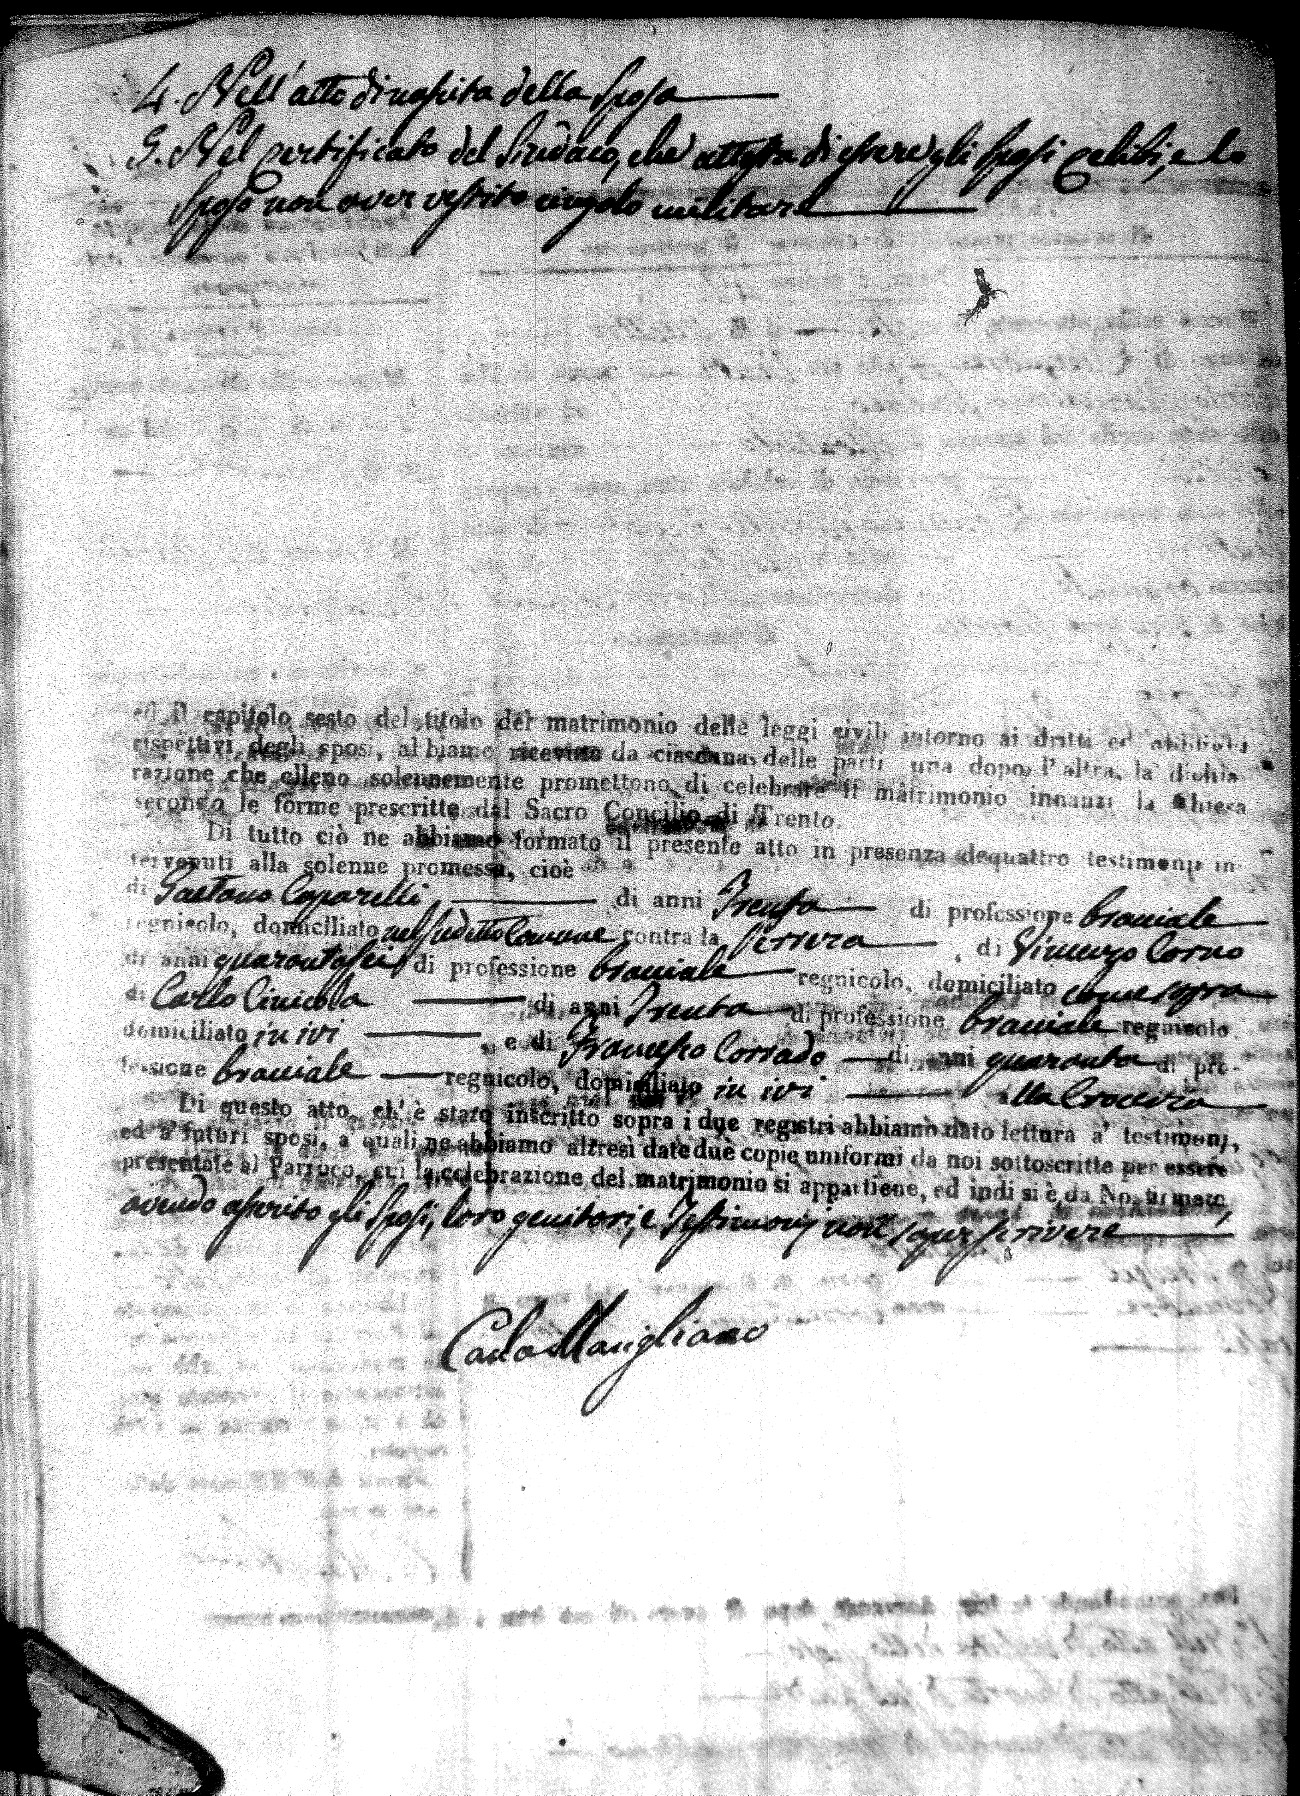 4. Nell'atto di nascita della Sposa
5. Nel certificato del Sindaco, che attesta di essere gli Sposi celibi, e lo
Sposo non aver vestito cingolo militare
ed il capitolo sesto del titolo del matrimonio delle leggi civili intorno ai dritti ed obblighi
rispettivi degli sposi, abbiamo ricevuto da ciascuna delle parti una dopo l'altra, la dichia
razione che elleno solennemente promettono di celebrare il matrimonio innanzi la Chiesa
secondo le forme prescritte dal Sacro Concilio di Trento.
Di tutto ciò ne abbiamo formato il presente atto in presenza de quattro testimonj in
tervenuti alla solenne promessa, cioè
di Gaetano Caparelli di anni Trenta di professione bracciale
regnicolo, domiciliato nel suddetto Comune contra la Serrera di Vincenzo Corno
di anni quarantasei di professione bracciale regnicolo, domiciliato come sopra
di Carlo Cinicola di anni Trenta di professione bracciale regnicolo
domiciliato in ivi e di Francesco Corrado di anni quaranta di pro-
fessione bracciale regnicolo, domiciliato in ivi alla Crocevia
Di questo atto, ch'è stato inscritto sopra i due registri abbiamo dato lettura a' testimonj,
ed a' futuri sposi, a quali ne abbiamo altresì date due copie uniformi da noi sottoscritte per essere
presentate al Parroco, cui la celebrazione del matrimonio si appartiene, ed indi si è da Noi firmato
avendo asserito gli Sposi, loro genitori, e Testimonj non saper scrivere
Carlo Marigliano